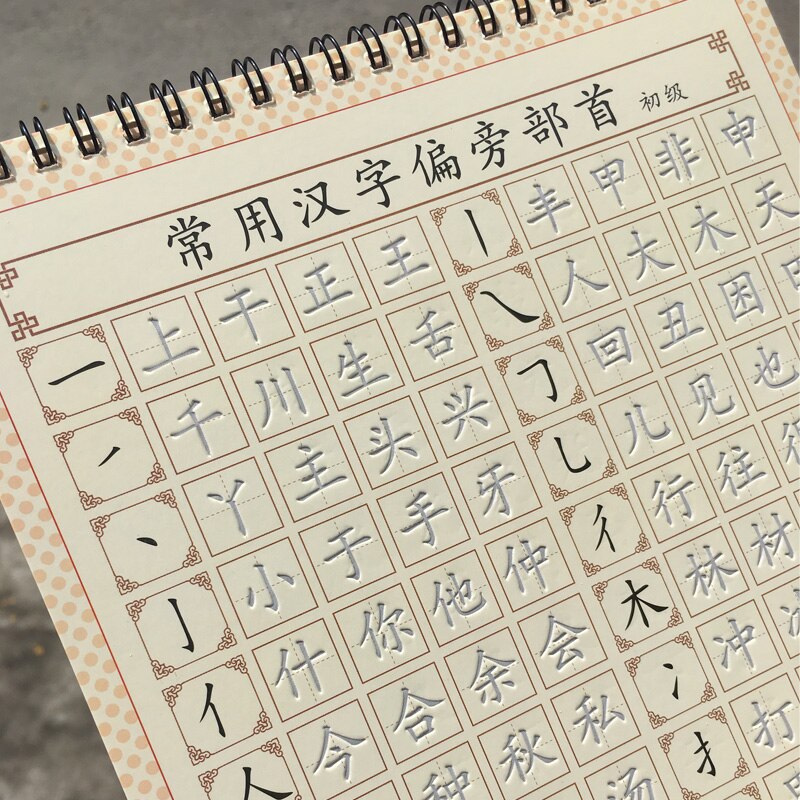 常用汉字偏旁部首 初级
一 上 干 正 王 丨 丰 甲 非 申
丿 千 川 生 舌 ㇏ 人 大 木 天
丶 丫 主 头 兴 𠃌 回 丑 因
亅 小 于 手 牙 乚 儿 见 也
亻 什 你 他 仲 彳 行 往
人 今 合 余 会 木 林 材
种 秋 私 冫 冲
汤 扌 打